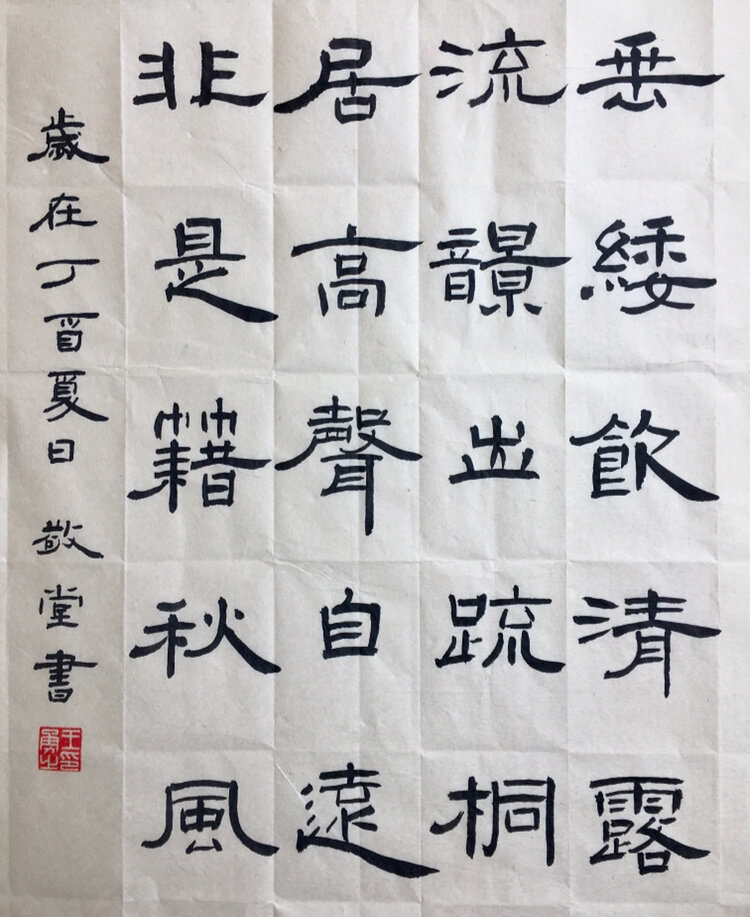 垂緌飲清露
流響出䟽桐
居高聲自遠
非是籍秋風
歲在丁酉夏日 敬堂書
王印勇之